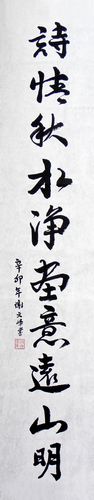 詩情秋水净畫意遠山明
辛卯年